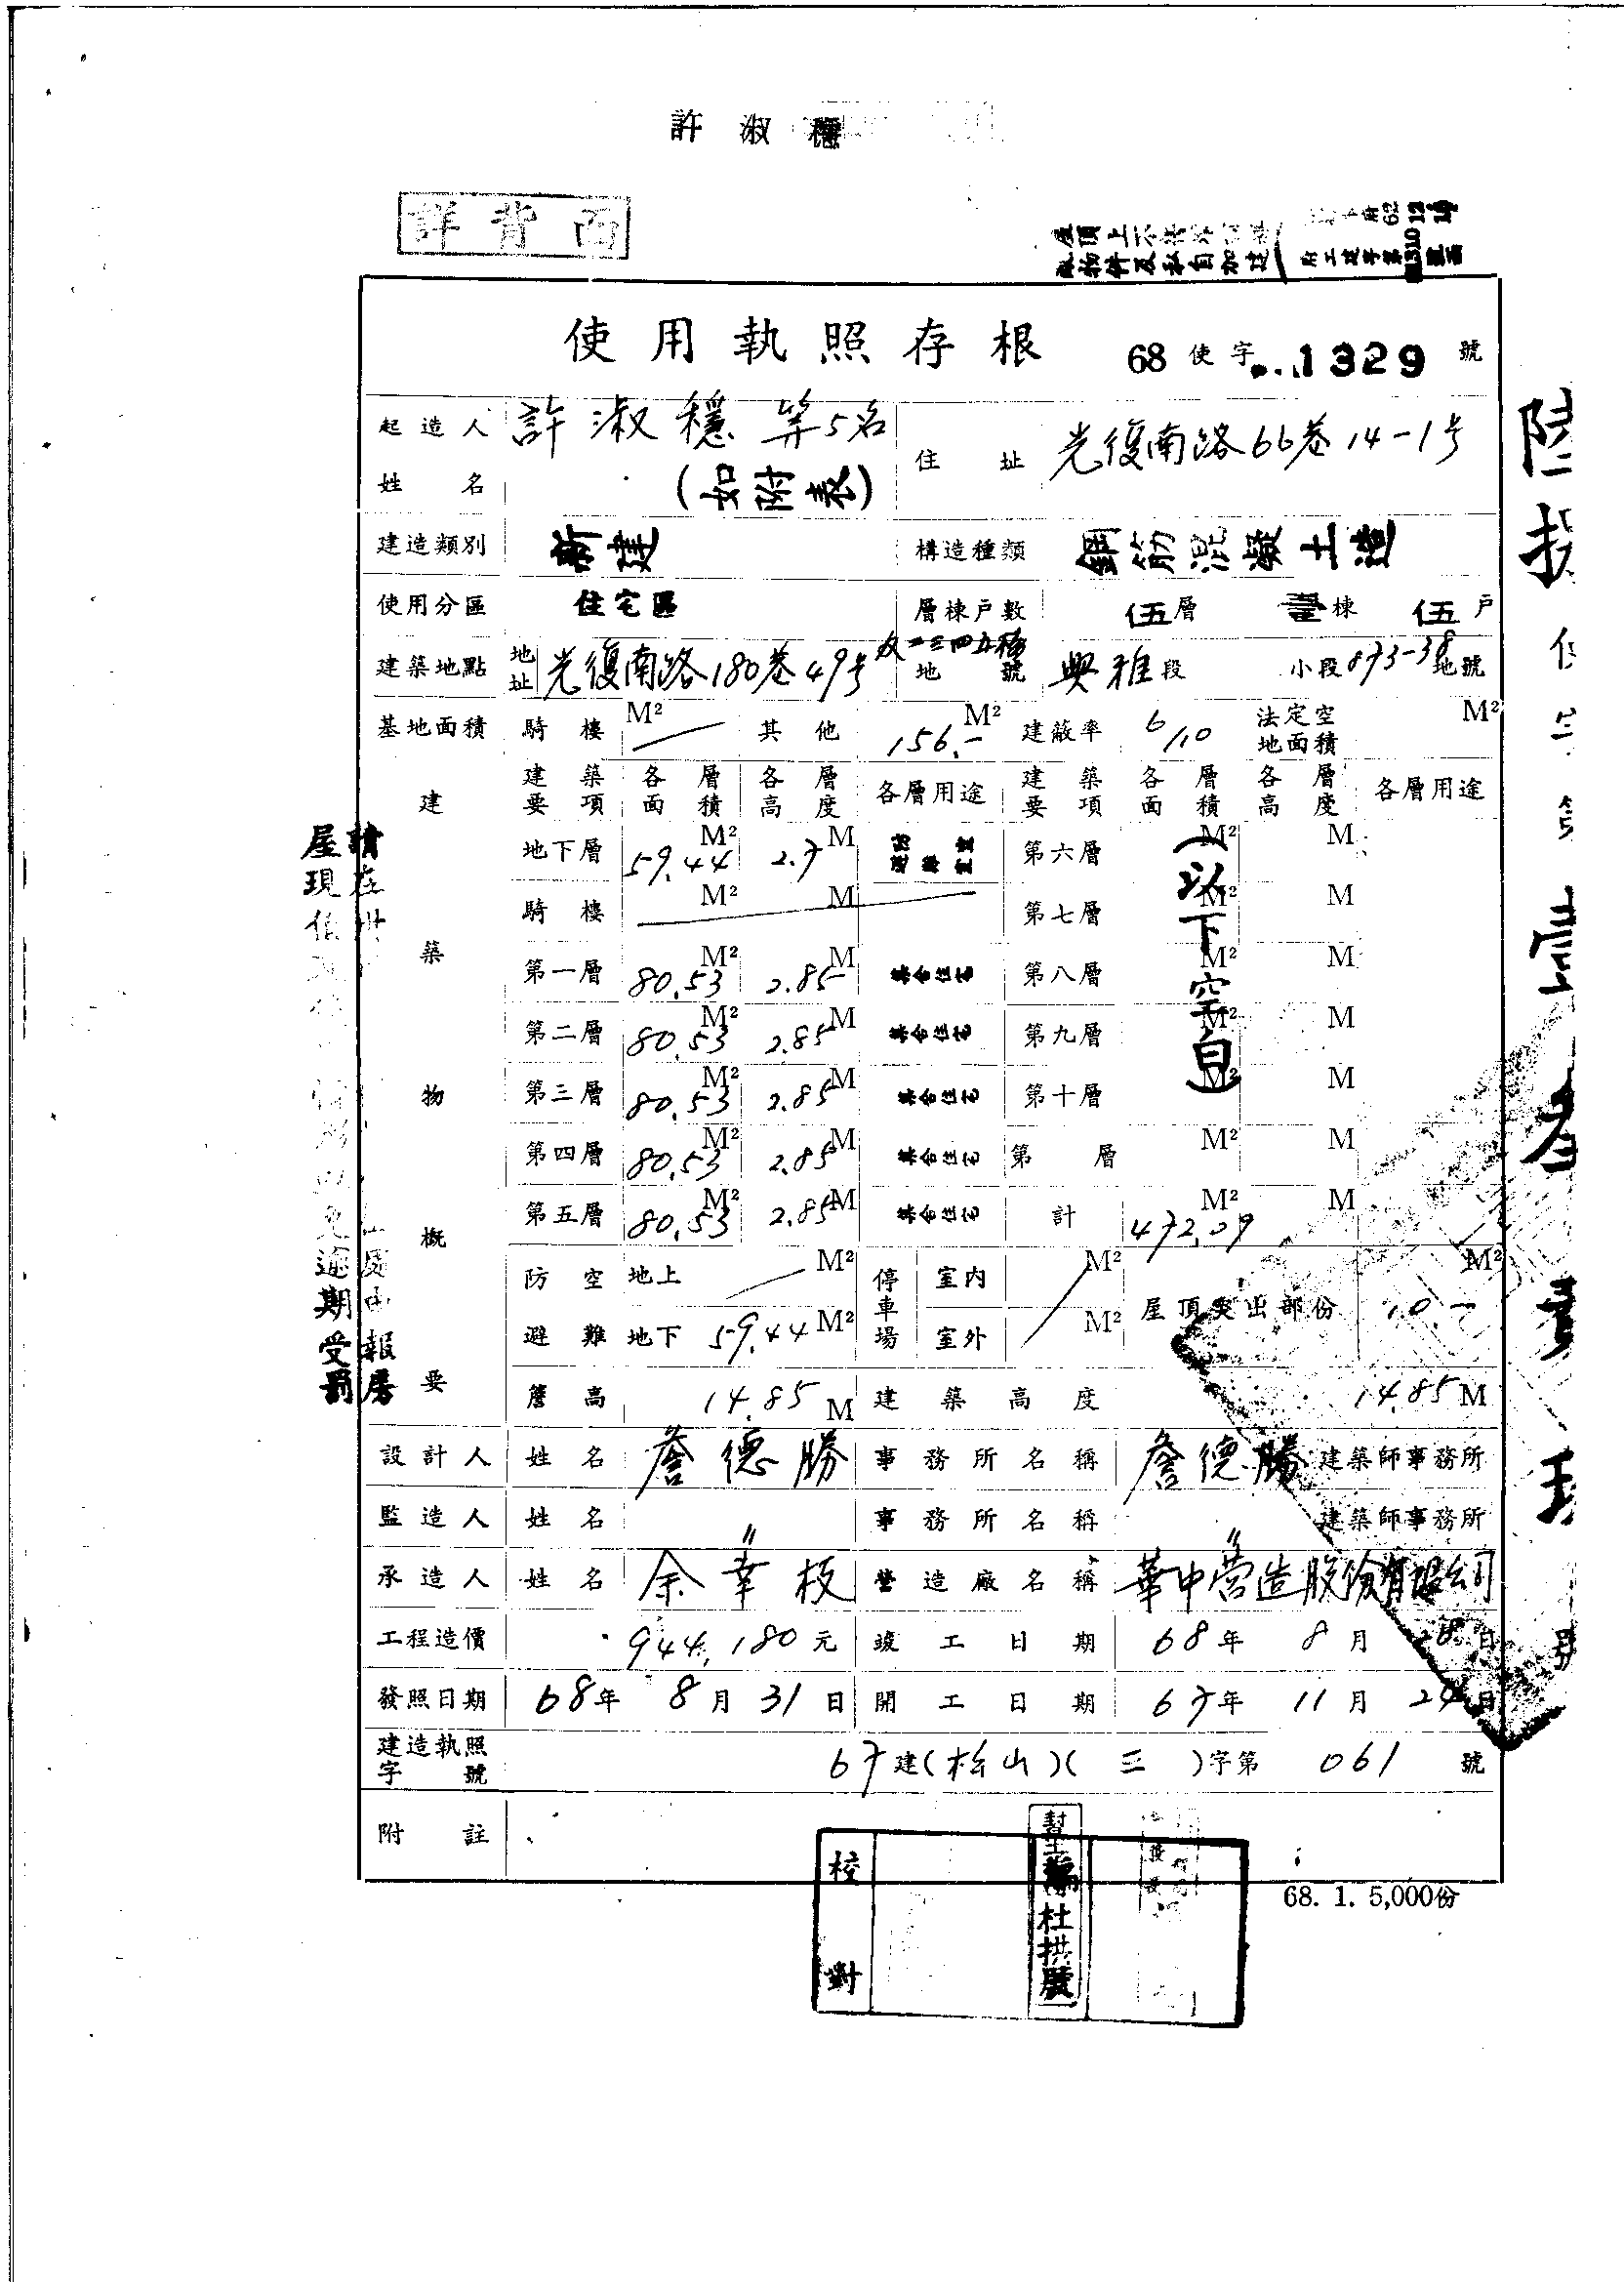 許淑穩
詳背面
使用執照存根 68 使字 1329 號
起造人姓名 許淑穩等5名(如附表) 住址 光復南路66巷14-1号
建造類別 新建 構造種類 鋼筋混凝土造
使用分區 住宅區 層棟戶數 伍層 壹棟 伍戶
建築地點 地址 光復南路180巷49号及二三四五樓 地號 興雅段 小段873-38地號
基地面積 騎樓 M² 其他 156.- M² 建蔽率 6/10 法定空地面積 M²
建築物概要
建築要項 各層面積 各層高度 各層用途 建築要項 各層面積 各層高度 各層用途
地下層 59.44 M² 2.7 M 第六層 M² M
騎樓 M² M 第七層 M² M
第一層 80.53 M² 2.85 M 集合住宅 第八層 M² M
第二層 80.53 M² 2.85 M 集合住宅 第九層 M² M
第三層 80.53 M² 2.85 M 集合住宅 第十層 M² M
第四層 80.53 M² 2.85 M 集合住宅 第 層 M² M
第五層 80.53 M² 2.85 M 集合住宅 計 472.09 M² M
(以下空白
防空避難 地上 M² 停車場 室內 M² 屋頂突出部份 10.- M²
地下 59.44 M² 室外 M²
簷高 14.85 M 建築高度 14.85 M
設計人 姓名 詹德勝 事務所名稱 詹德勝 建築師事務所
監造人 姓名 〃 事務所名稱 〃 建築師事務所
承造人 姓名 余幸枝 營造廠名稱 華中營造股份有限公司
工程造價 944,180元 竣工日期 68年 8月 28日
發照日期 68年 8月 31日 開工日期 67年 11月 24日
建造執照字號 67建(松山)(三)字第 061 號
附註
校對
68. 1. 5,000份